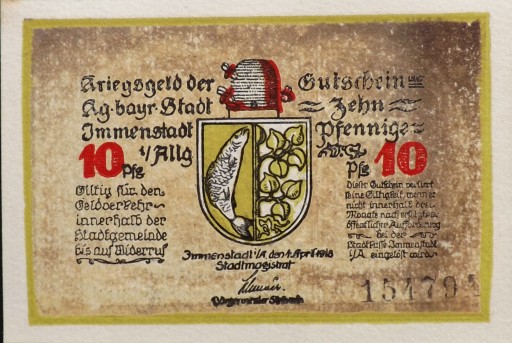 Kriegsgeld der
Kg. bayr. Stadt
Immenstadt
i/Allg
10 Pfg
Giltig für den
Geldverkehr
innerhalb der
Stadtgemeinde
bis auf Widerruf
Gutschein
Zehn
Pfennige
Pfg 10
Dieser Gutschein verliert
seine Giltigkeit, wenn er
nicht innerhalb der
Monate nach erfolgter
öffentlicher Aufforderung
bei der
Stadtkasse Immenstadt
i/A eingelöst wird
Immenstadt i/A. den 1. April 1918
Stadtmagistrat
154794